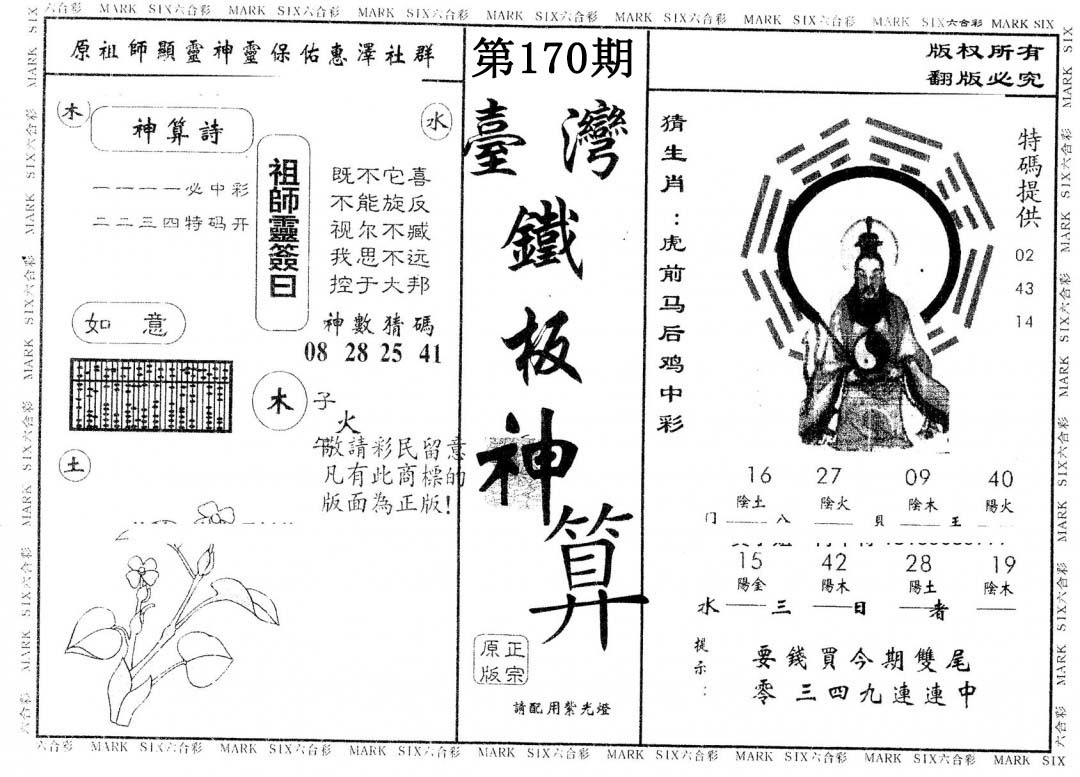 六合彩 MARK SIX六合彩 MARK SIX六合彩 MARK SIX六合彩 MARK SIX六合彩 MARK SIX六合彩 MARK SIX六合彩 MARK SIX六合彩 MARK SIX
原祖師顯靈神靈保佑惠澤社群
第170期
版权所有
翻版必究
木
神算詩
水
一一一一必中彩
二二三四特码开
祖師靈簽曰
既不它喜
不能旋反
视尔不臧
我思不远
控于大邦
如意
神數猜碼
08 28 25 41
木
子
火
午
敬請彩民留意
凡有此商標的
版面為正版!
土
臺灣
鐵板神算
正宗
原版
請配用紫光燈
猜生肖:虎前马后鸡中彩
特碼提供
02
43
14
16 27 09 40
陰土 陰火 陰木 陽火
门 八 貝 王
15 42 28 19
陽金 陽木 陽土 陰木
水 三 日 者
提示:
要錢買今期雙尾
零三四九連連中
六合彩 MARK SIX六合彩 MARK SIX六合彩 MARK SIX六合彩 MARK SIX六合彩 MARK SIX六合彩 MARK SIX六合彩 MARK SIX六合彩 MARK SIX